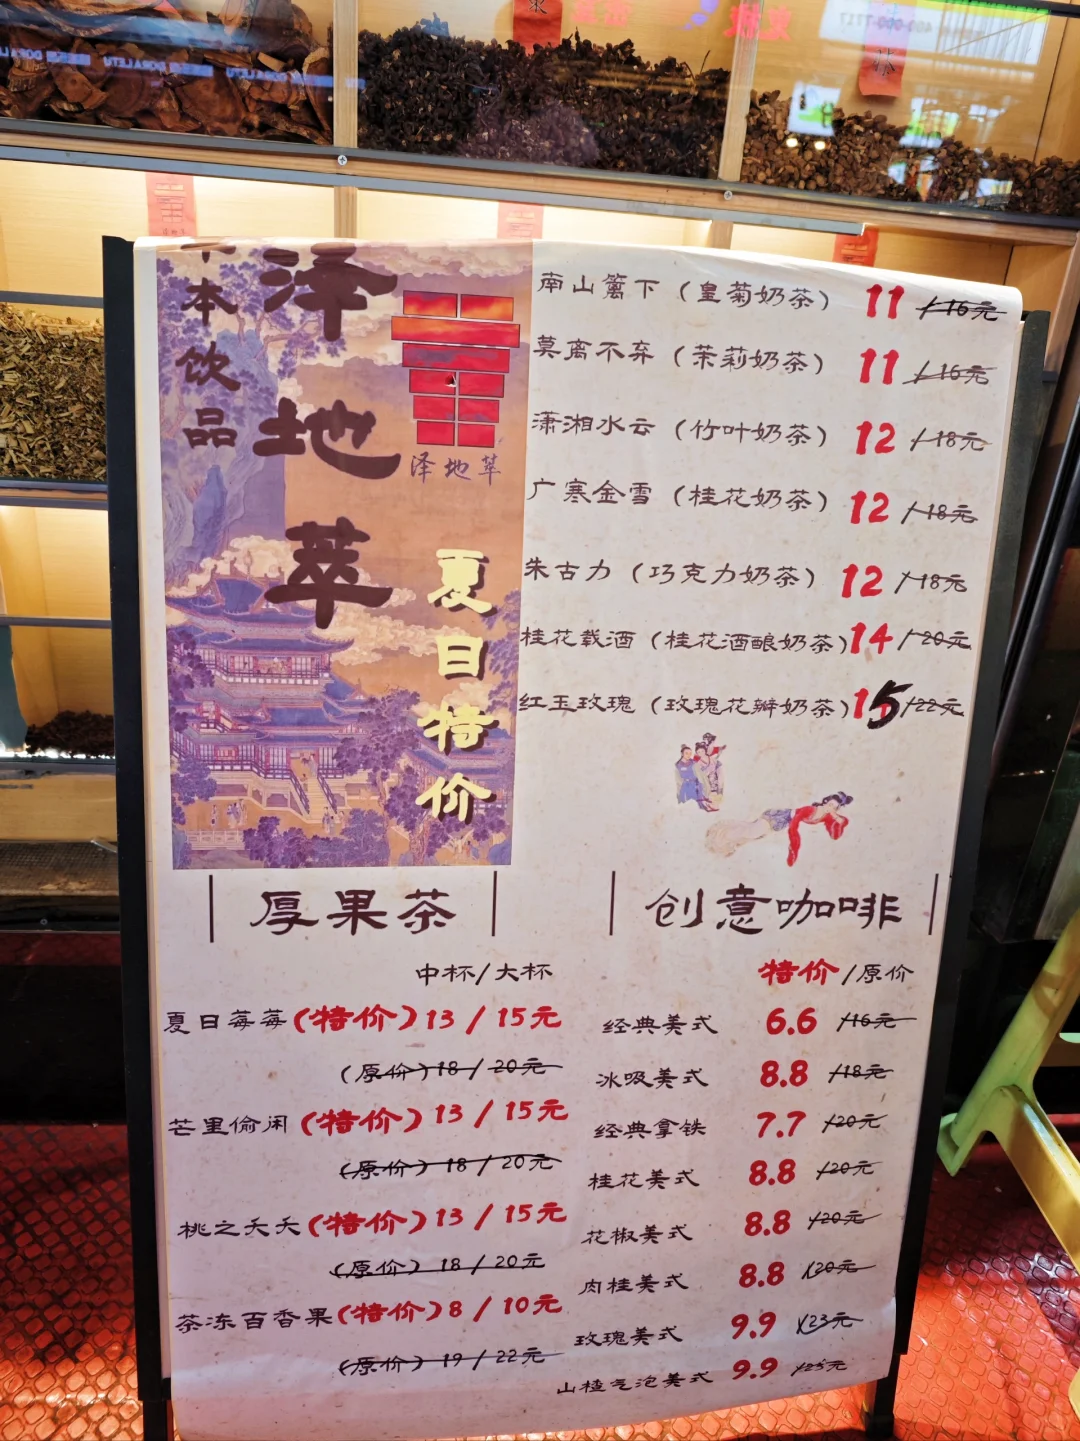 本饮品
泽地萃
泽地萃
夏日特价
南山篱下（皇菊奶茶） 11 /16元
莫离不弃（茉莉奶茶） 11 /16元
潇湘水云（竹叶奶茶） 12 /18元
广寒金雪（桂花奶茶） 12 /18元
朱古力（巧克力奶茶） 12 /18元
桂花载酒（桂花酒酿奶茶）14 /20元
红玉玫瑰（玫瑰花瓣奶茶）15 /22元
厚果茶
中杯/大杯
夏日莓莓（特价）13 / 15元
（原价）18 / 20元
芒里偷闲（特价）13 / 15元
（原价）18 / 20元
桃之夭夭（特价）13 / 15元
（原价）18 / 20元
茶冻百香果（特价）8 / 10元
（原价）19 / 22元
创意咖啡
特价/原价
经典美式 6.6 /16元
冰吸美式 8.8 /18元
经典拿铁 7.7 /20元
桂花美式 8.8 /20元
花椒美式 8.8 /20元
肉桂美式 8.8 /20元
玫瑰美式 9.9 /23元
山楂气泡美式 9.9 /25元